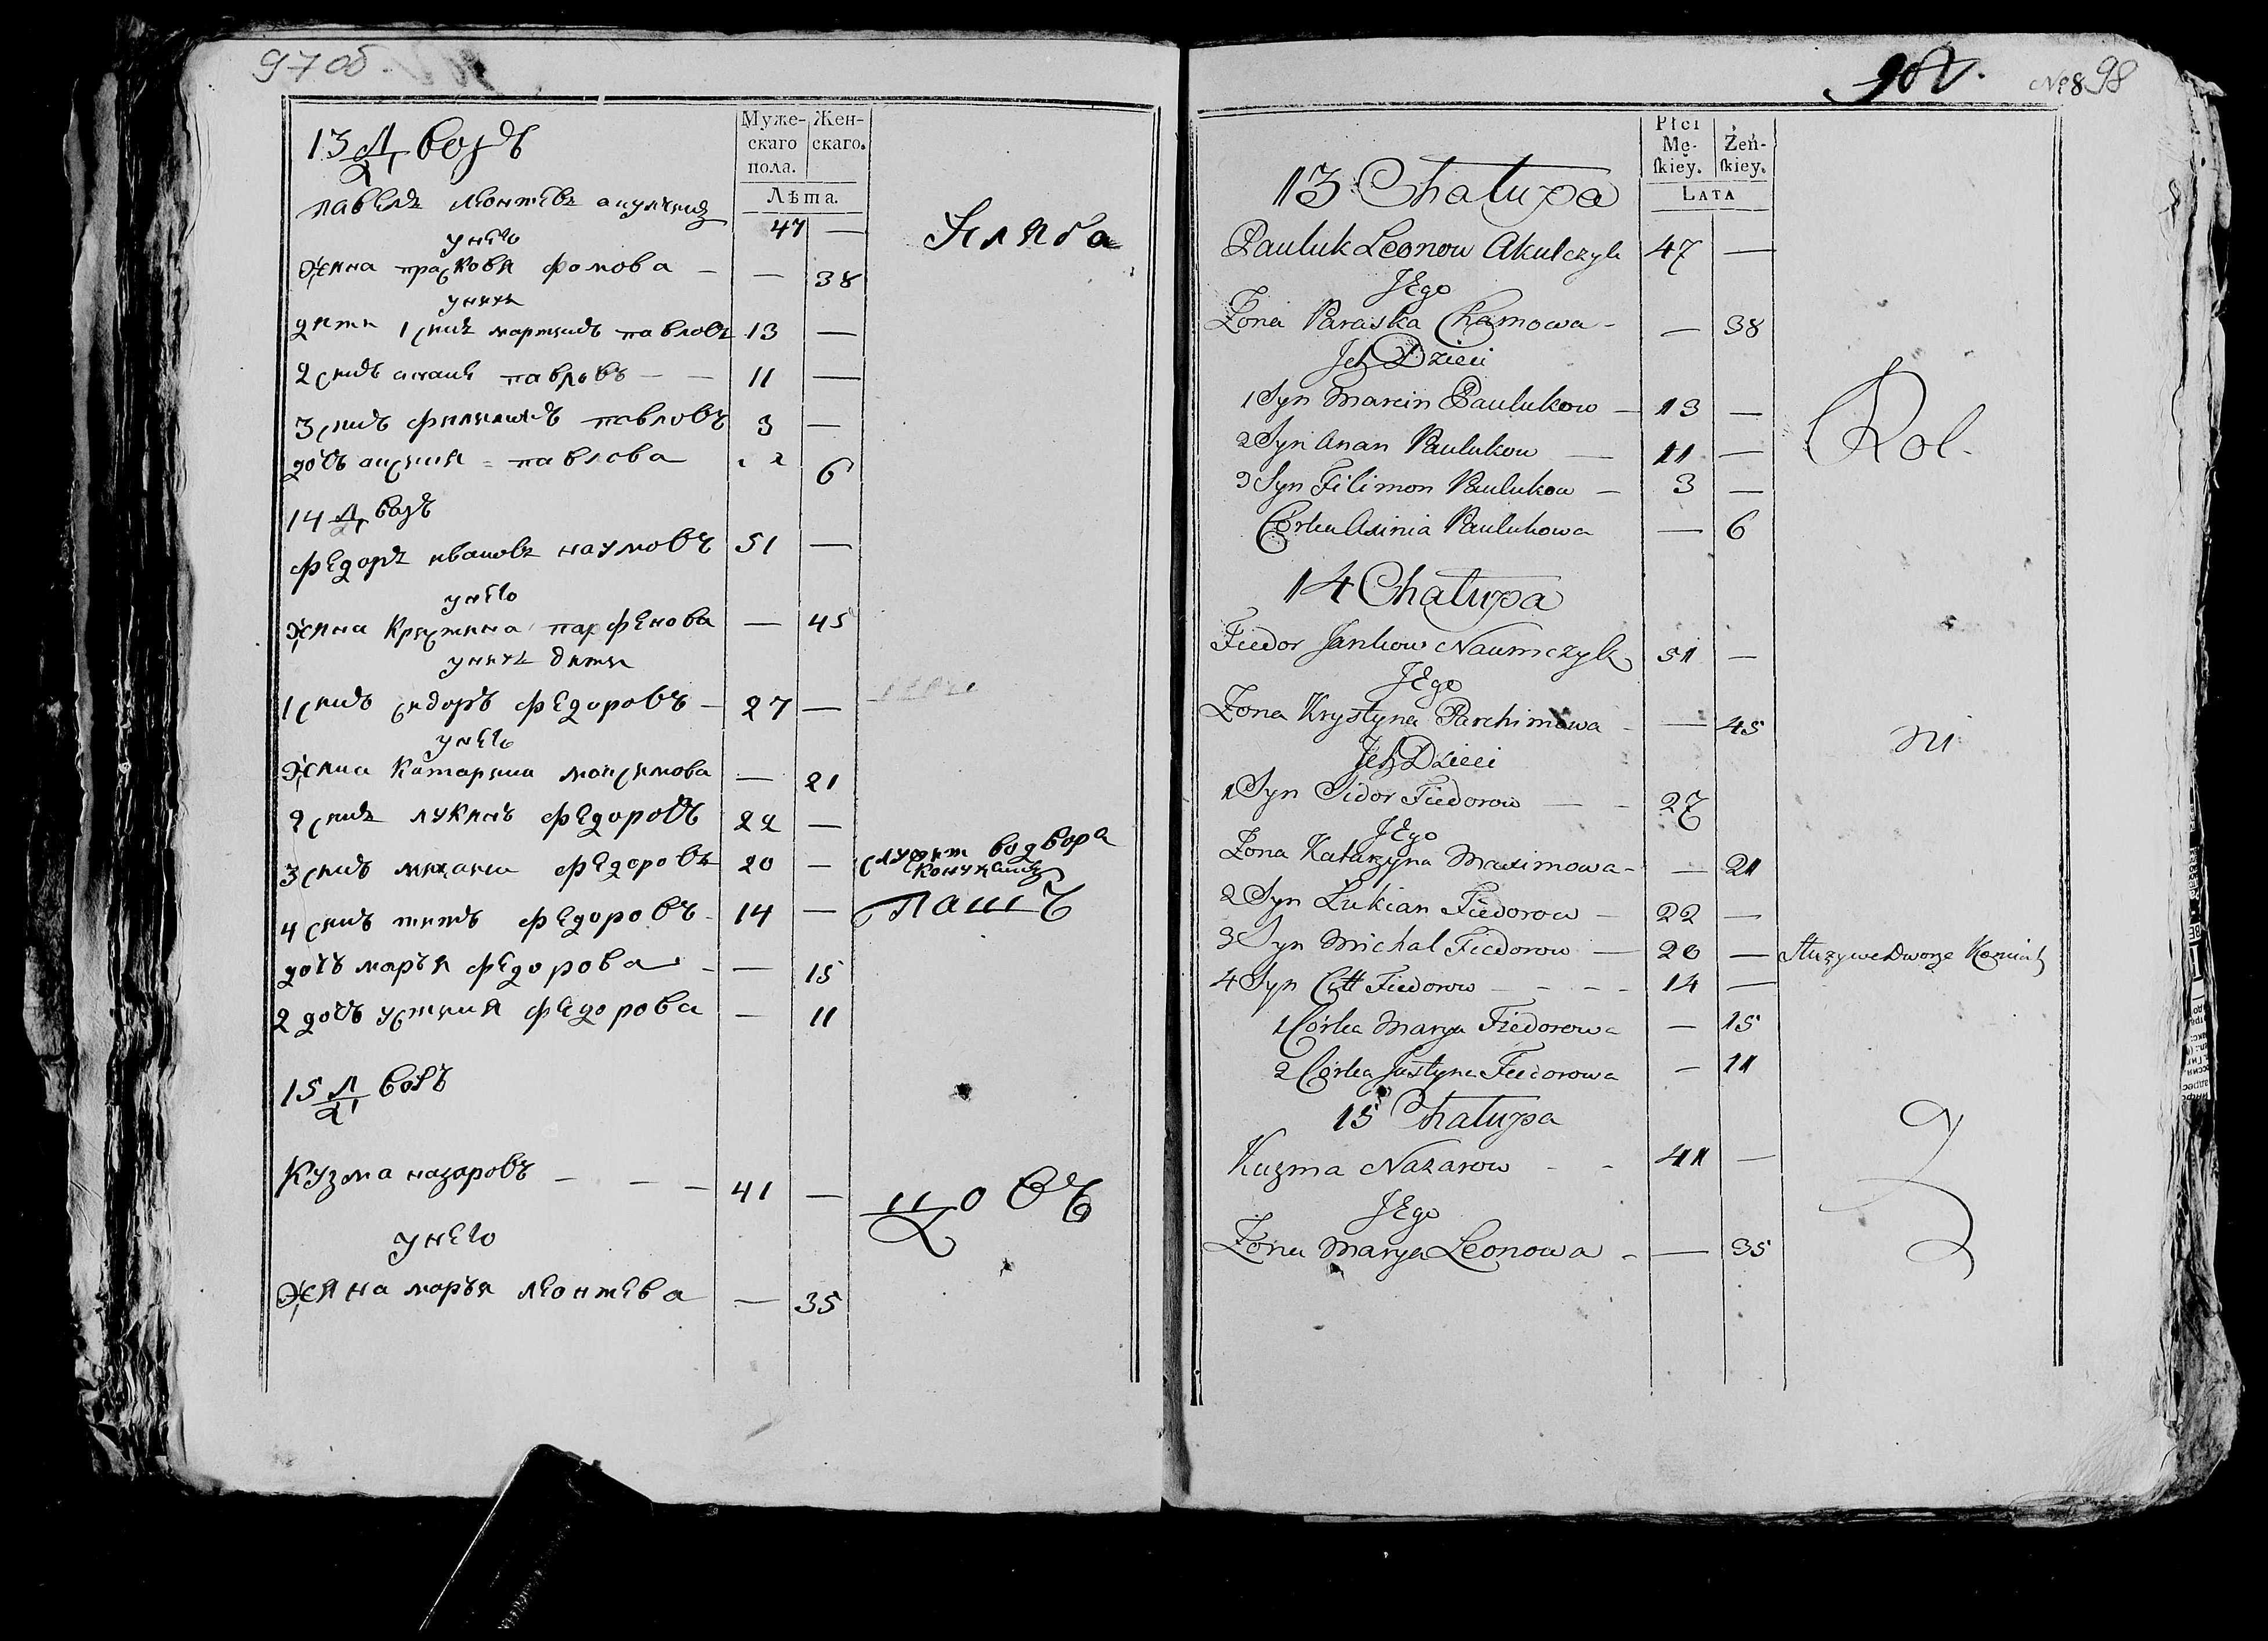 97об.
13 Дворъ
Муже-
скаго
пола.
Жен-
скаго.
Лѣта.
павелъ леонтевъ акулчикъ 47 —
унего
жина прасковя фомова — — 38
унихъ
дити 1 синъ мартинъ павловъ 13 —
2 синъ анани павловъ — — 11 —
3 синъ филимонъ павловъ 3 —
дочъ аксиния = павлова 6
14 Дворъ
федоръ ивановъ наумовъ 51 —
унего
жина Кристина парфенова — 45
унихъ дити
1 синъ сидоръ федоровъ — 27 —
унего
жина Катарина максимова — 21
2 синъ лукянъ федоровъ 22 —
3 синъ михаила федоровъ 20 — служит водвора
4 синъ титъ федоровъ 14 — пашъ
дочъ марья федорова — — 15
2 дочъ устиния федорова — 11
15 Дворъ
Кузма назаровъ — — — 41 —
унего
жина марья леонтева — 35
№ 8 98
Płci
Mę-
ſkiey.
Żeń-
ſkiey.
Lata
13 Chałupa
Pauluk Leonow Akulczyk 47 —
Jego
Żona Paraska Chamowa - — 38
Jch Dzieci
1 Syn Marcin Paulukow — 13 —
2 Syn Anan Paulukow — 11 —
3 Syn Filimon Paulukow — 3 —
Córka Axinia Paulukowa — 6
Rol.
14 Chałupa
Fiedor Jankow Naumczyk 51 —
Jego
Żona Krystyna Parchimowa - — 45
ni
Jch Dzieci
1 Syn Sidor Fiedorow — - 27
Jego
Żona Katarzyna Maximowa - — 21
2 Syn Lukian Fiedorow — 22 —
3 Syn Michal Fiedorow — 20 — Służy we Dworze
4 Syn Citt Fiedorow - - - - 14 —
1 Córka Marya Fiedorowa — 15
2 Córka Justyna Fiedorowa — 11
15 Chałupa
Kuzma Nazarow - - 41 —
Jego
Żona Marya Leonowa - — 35